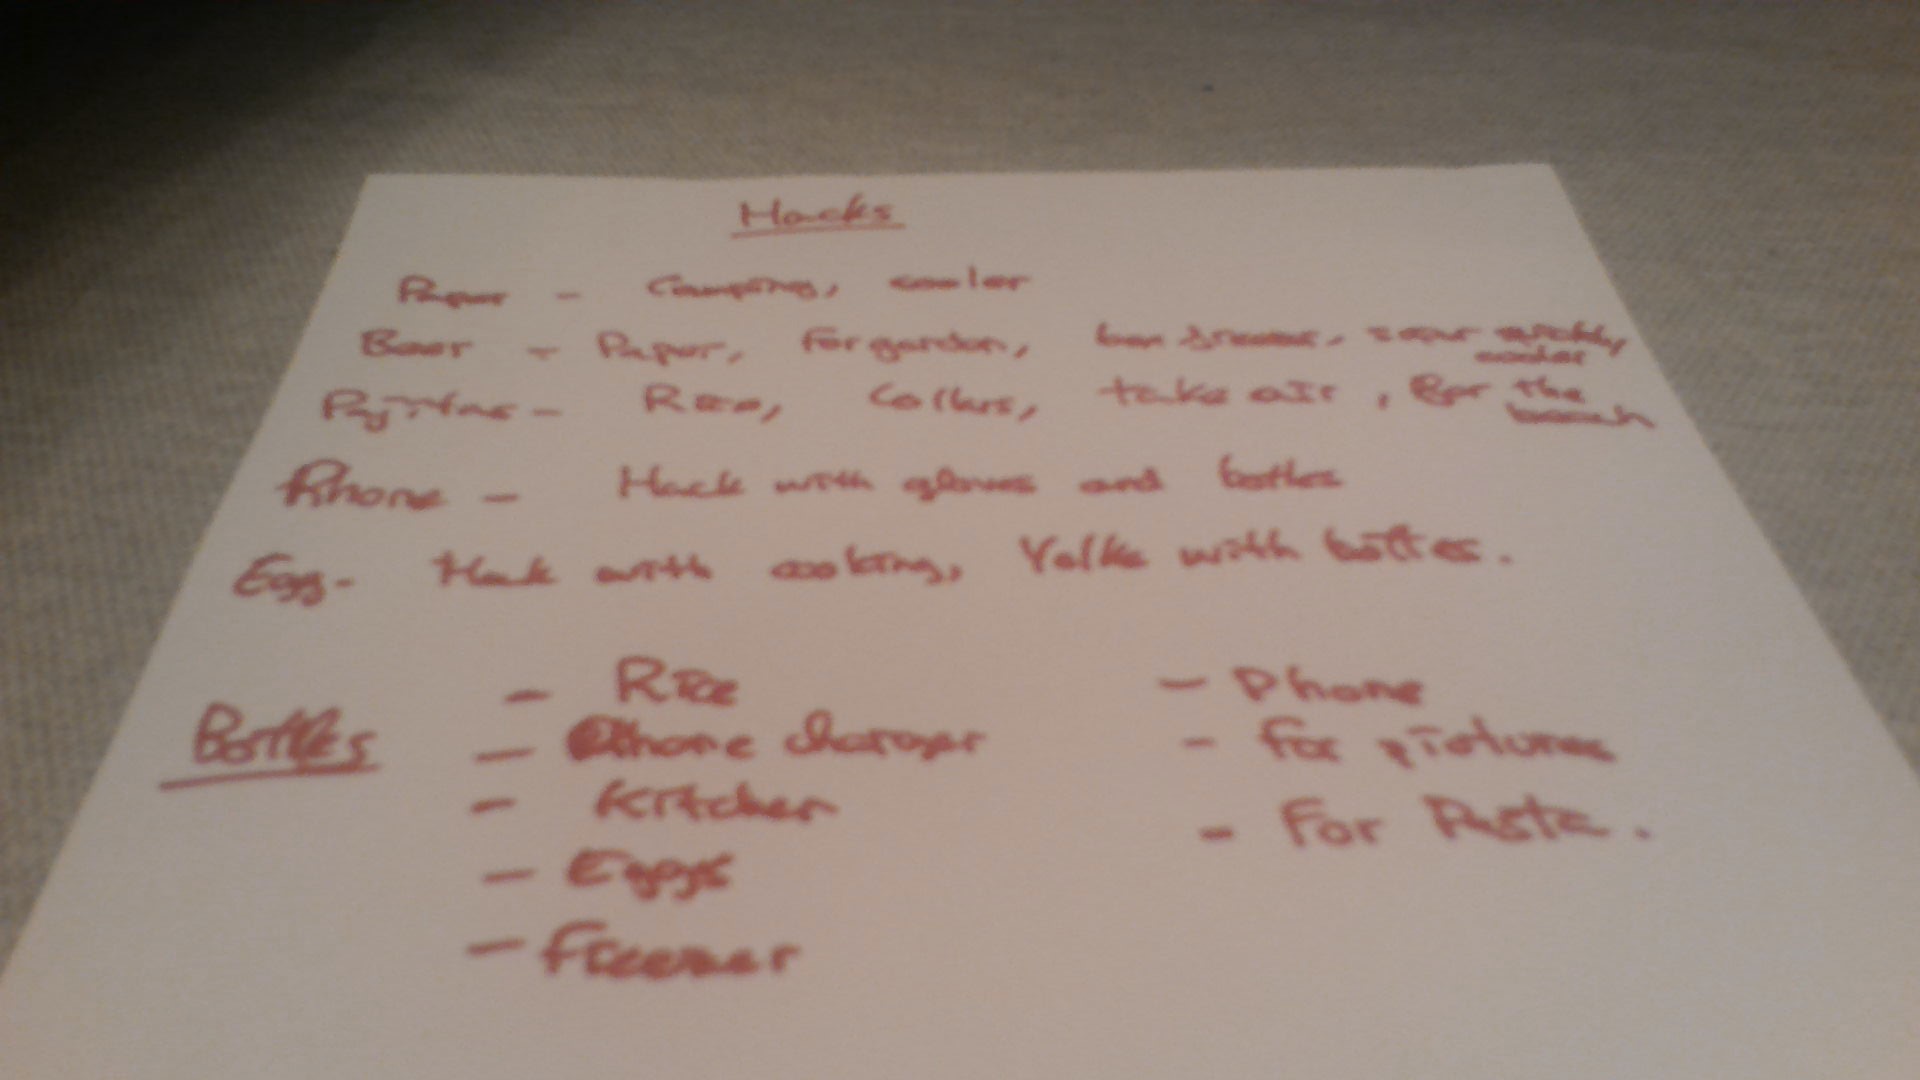 Hacks
Paper - Camping, cooler
Beer - Paper, For garden,
- Rice, Collars, take air, For the beach
Phone - Hack with gloves and bottles
Egg - Hack with cooking, Yolks with bottles.
Bottles
- Rice
- Phone charger
- Kitchen
- Eggs
- Freezer
- Phone
- for pictures
- For Pasta.